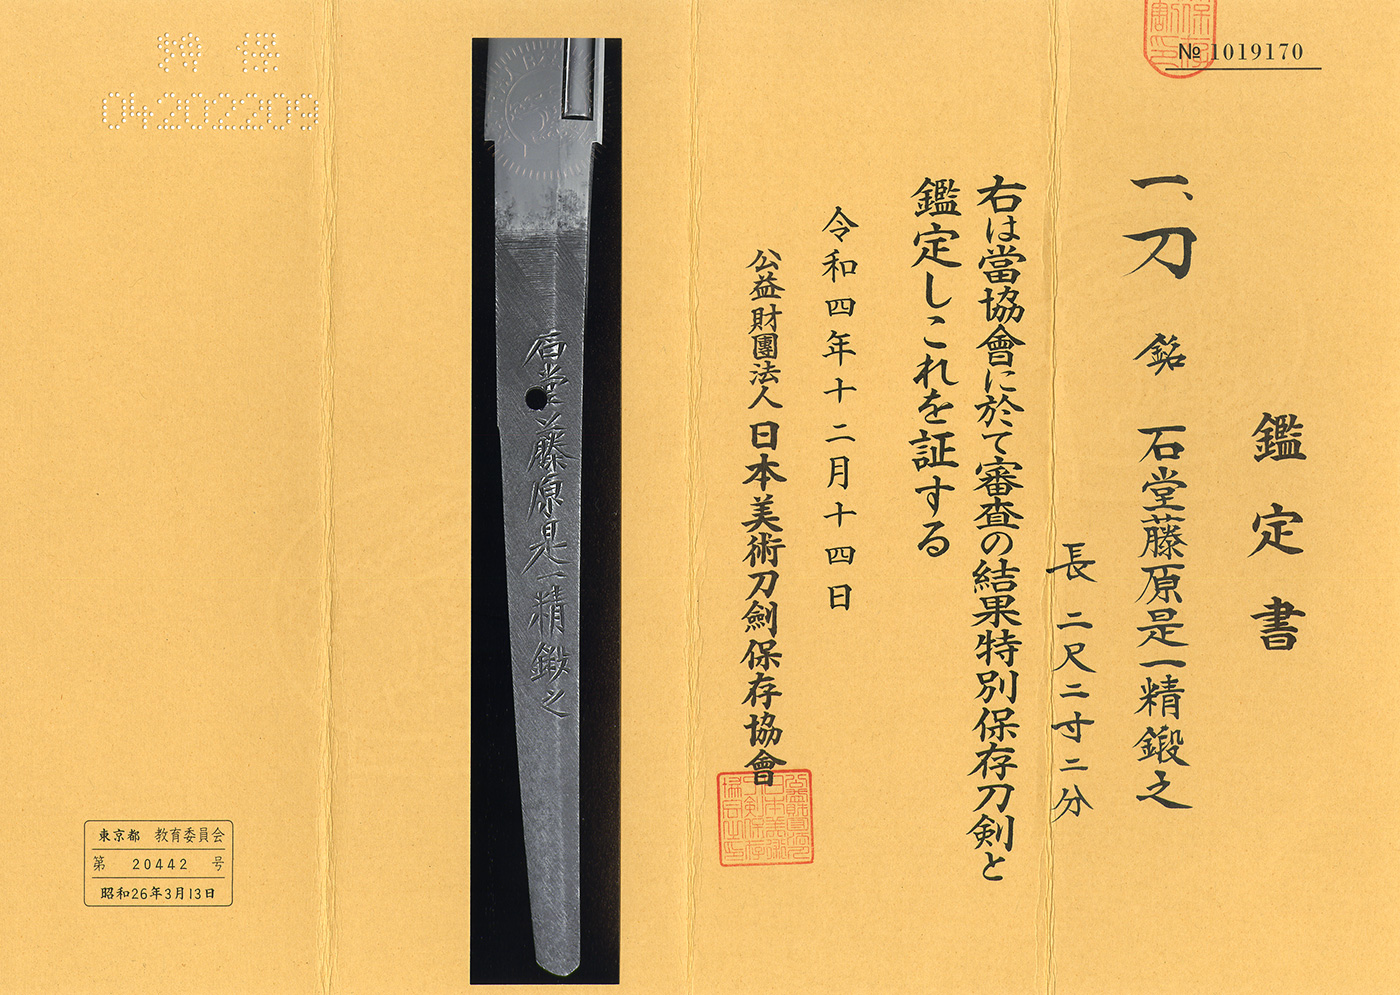 № 1019170
鑑定書
一、刀 銘 石堂藤原是一精鍛之
長 二尺二寸二分
右は當協會に於て審査の結果特別保存刀剣と
鑑定しこれを証する
令和四年十二月十四日
公益財團法人 日本美術刀劍保存協會
石堂藤原是一精鍛之
特保
04202209
東京都 教育委員会
第 20442 号
昭和26年3月13日